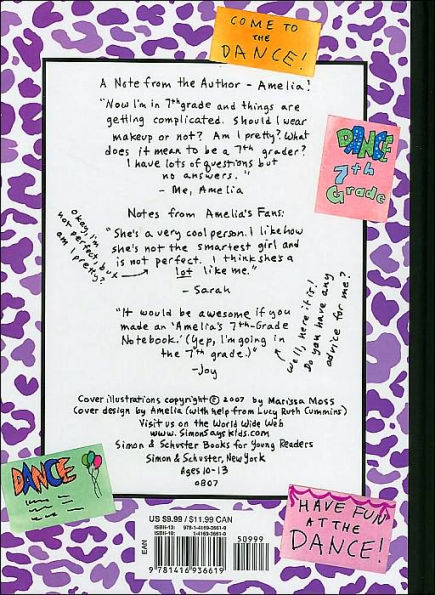 COME TO
THE
DANCE!
A Note from the Author - Amelia!
"Now I'm in 7th grade and things are
getting complicated. Should I wear
makeup or not? Am I pretty? What
does it mean to be a 7th grader?
I have lots of questions but
no answers."
- Me, Amelia
DANCE
7th
Grade
Notes from Amelia's Fans:
"She's a very cool person. I like how
she's not the smartest girl and
is not perfect. I think she's a
lot like me."
- Sarah
okay, I'm
not perfect, but
am I pretty?
"It would be awesome if you
made an 'Amelia's 7th-Grade
Notebook.' (Yep, I'm going in
the 7th grade.)"
-Joy
well, here it is!
Do you have any
advice for me?
Cover illustrations copyright © 2007 by Marissa Moss
Cover design by Amelia (with help from Lucy Ruth Cummins)
Visit us on the World Wide Web
www.SimonSaysKids.com
Simon & Schuster Books for Young Readers
Simon & Schuster, New York
Ages 10-13
0807
DANCE
HAVE FUN
AT THE
DANCE!
US $9.99 / $11.99 CAN
ISBN-13: 978-1-4169-3661-9
ISBN-10: 1-4169-3661-0
50999
EAN
9 781416 936619